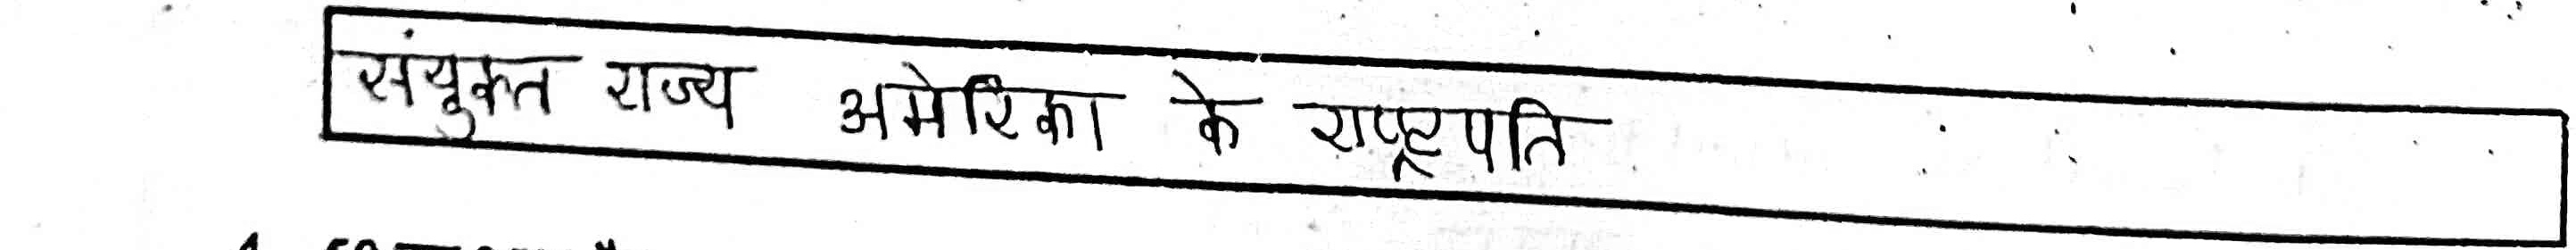 संयुक्त राज्य अमेरिका के राष्ट्रपति